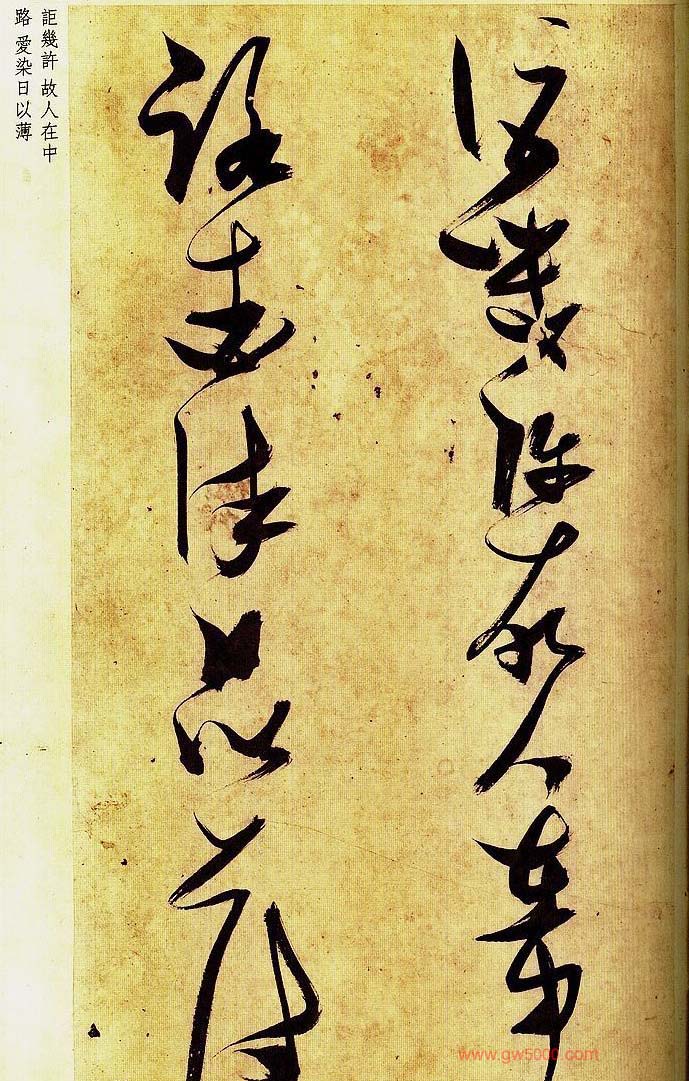 詎幾許故人在中
路愛染日以薄
詎幾許 故人在中
路 愛染日以薄
www.gw5000.com